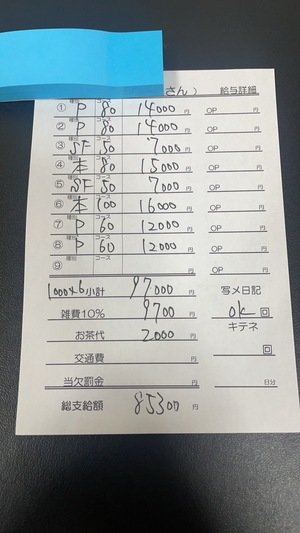 さん） 給与詳細
種別 コース
① P 80 14000 円 OP 円
② P 80 14000 円 OP 円
③ SF 50 7000 円 OP 円
④ 本 80 15000 円 OP 円
⑤ SF 50 7000 円 OP 円
⑥ 本 100 16000 円 OP 円
⑦ P 60 12000 円 OP 円
⑧ P 60 12000 円 OP 円
⑨ 円 OP 円
1000×6 小計 97000 円 写メ日記
雑費10% 9700 円 ok 回
お茶代 2000 円 キテネ
交通費 円 回
当欠罰金 円 日分
総支給額 85300 円